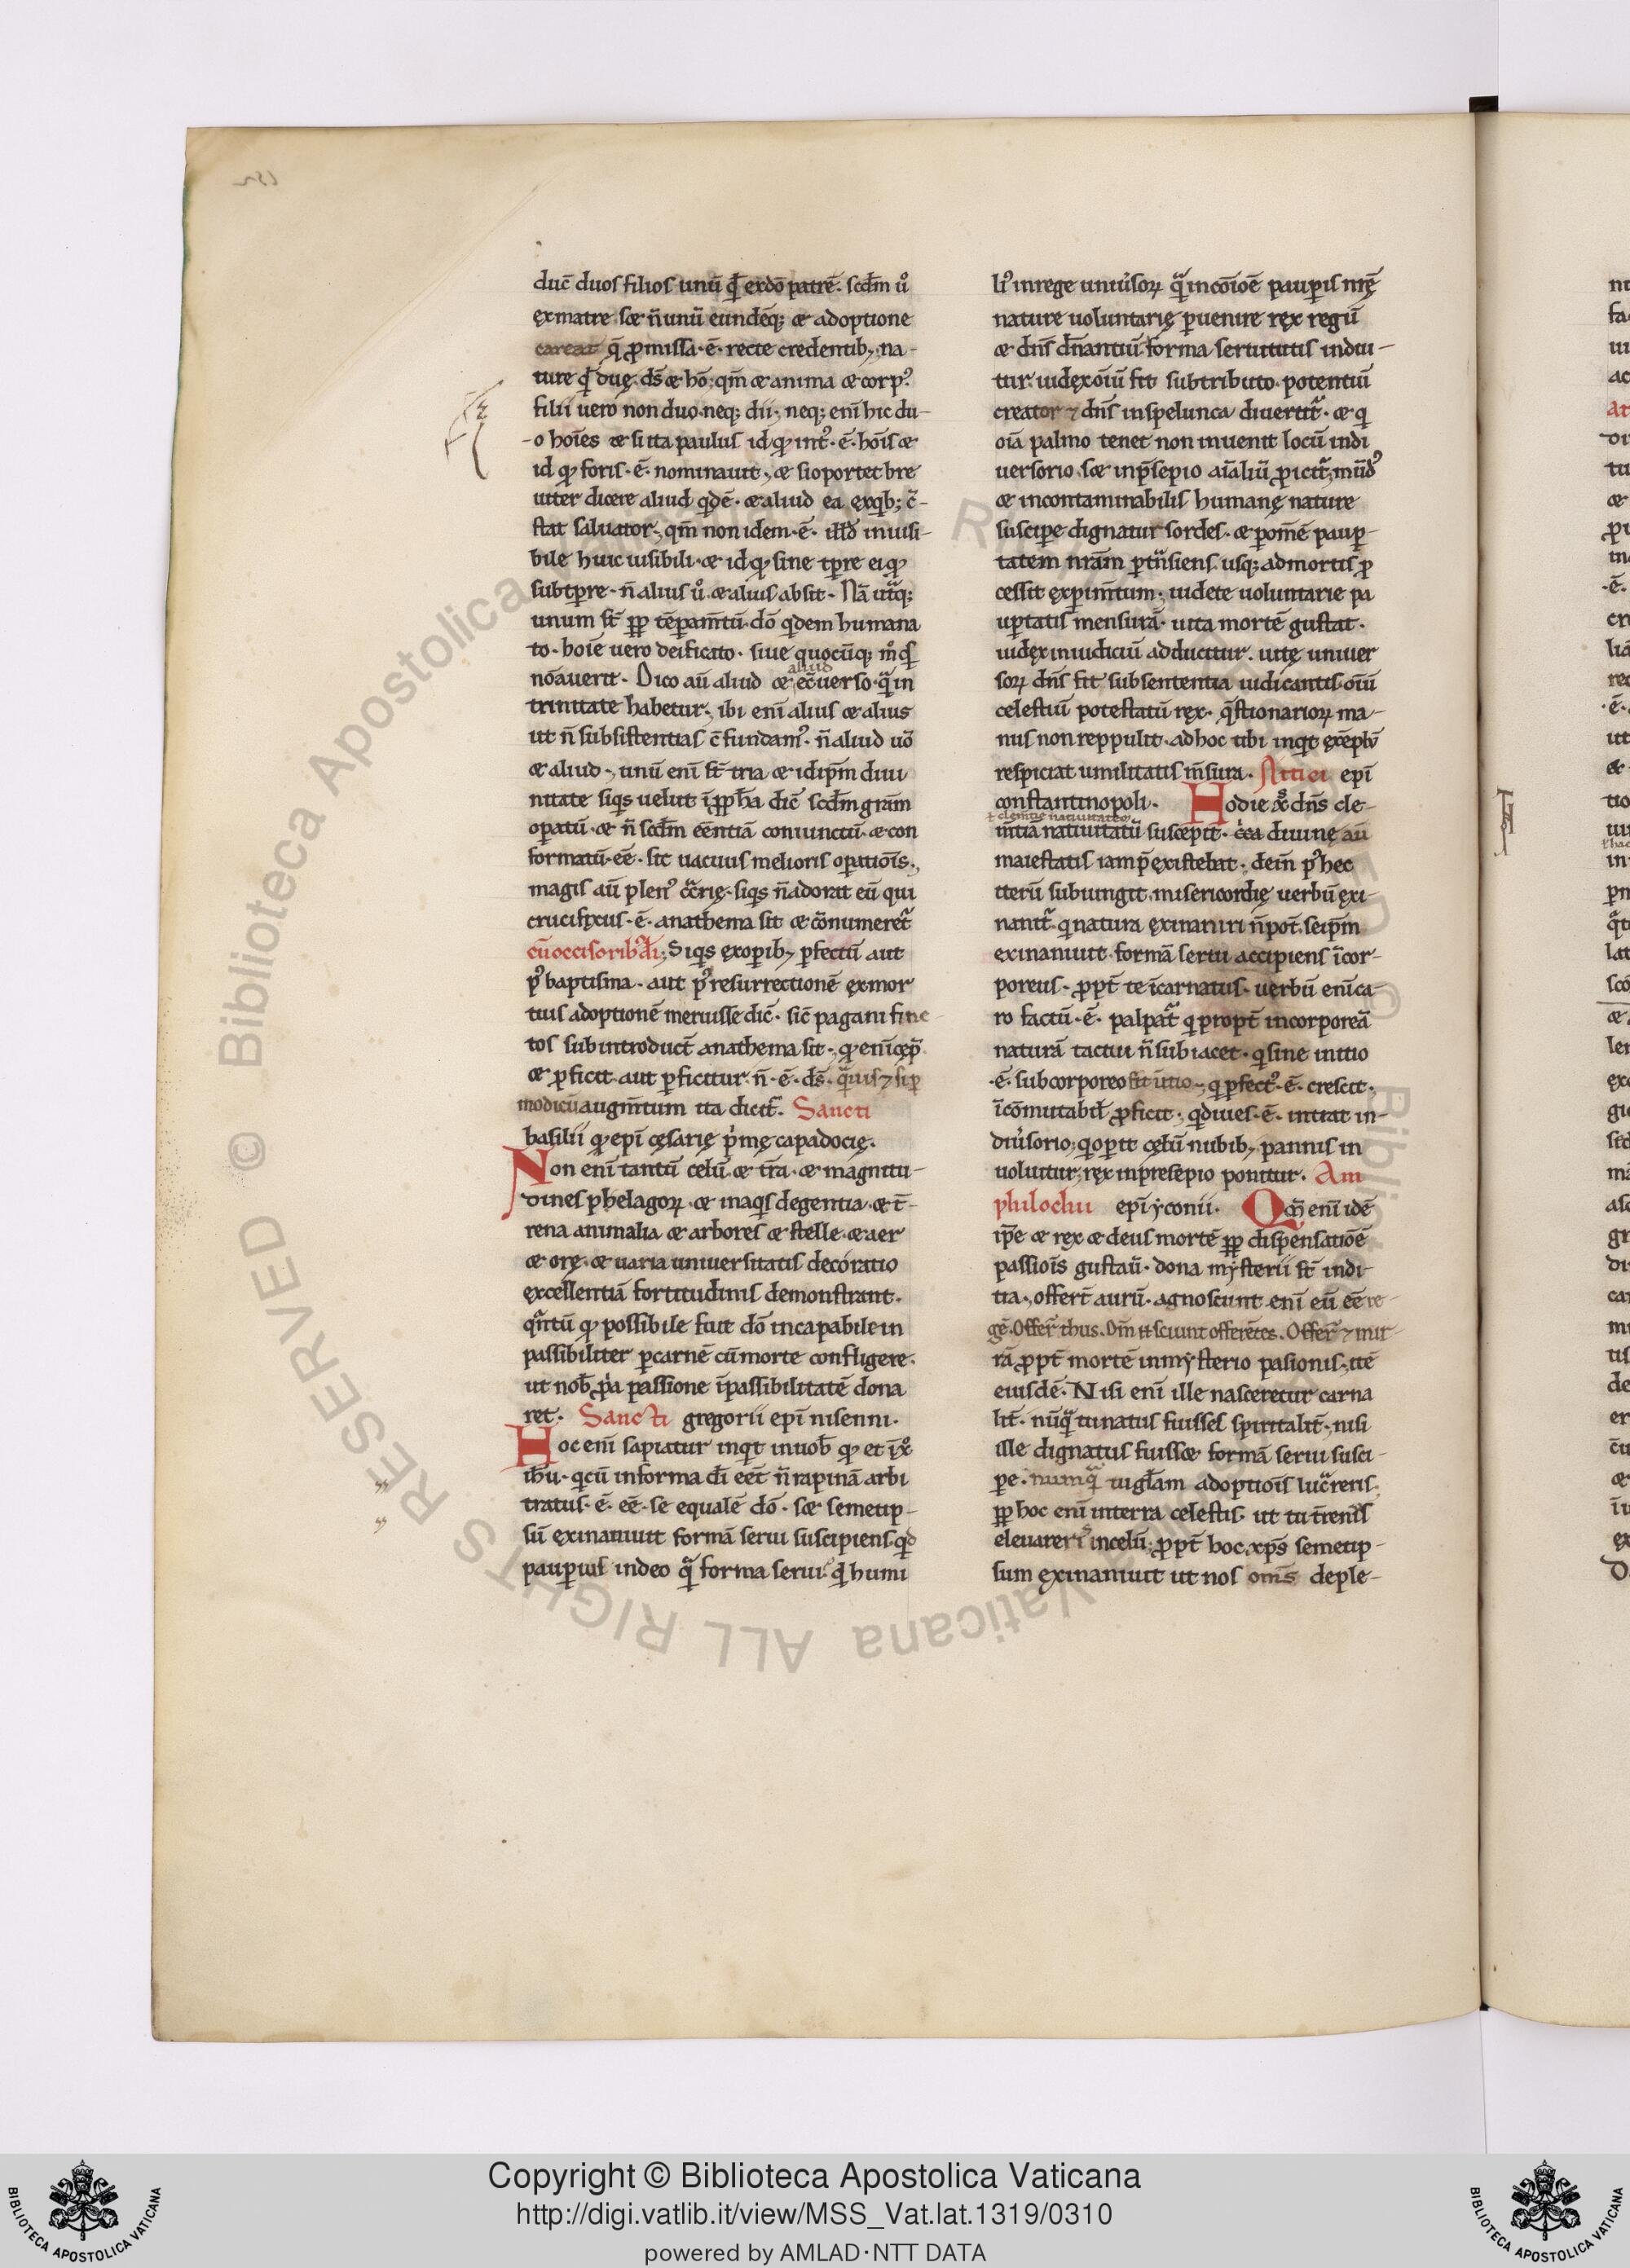 duc̄ duos filios unū q̄d exdō patrē. scdm ů
ęxmatre. sꝫ n̄ unū eundēq; & adoptione
careat q̄ ꝓmissa ē recte credentibꝫ na-
ture q̄d duę. ds̄ & hō. qm̄ & anima & corpꝰ
filii uero non duo. neq; dii. neq; eni hic du-
-o hoīes & si ita paulus id qd̄ intꝰ ē hoīs &
id qd̄ foris ē nominauit. & si oportet bre
uiter dicere aliud qdē & aliud ea ęxqb; c̄-
stat saluator. qm̄ non idem ē illd inuisi-
bile huic uisibili. & id qd̄ sine tp̄re ei qd̄
subtp̄re. n̄ alius ů & alius absit. Nā utq;
unum st̄ ꝑꝑ tēpam̄tū. dō qdem humana
to. hoīe uero deificato. siue quocūq; m̊ qs
nōauerit. Dico aū aliud & aliud ec̄uerso. q̄ in
trinitate habetur. ibi enī alius & alius
ut n̄ subsistentias c̄fundamꝰ. n̄ aliud uō
& aliud. unū enī st̄ tria & idip̄m diui
nitate siqs uelut ī ꝓpha dic̄ scdm grām
opatū. & n̄ scdm eēntiā coniunctū & con
formatū eē. sit uacuus melioris opatiōis.
magis aū plenꝰ c̄trię. siqs n̄ adorat eū qui
crucifixus ē. anathema sit & cōnumeret̄
cū occisorib; dī; Siqs ęxopibꝫ pfectū aut
pꝰ baptisma. aut pꝰ resurrectionē ęxmor
tuis adoptionē meruisse dic̄. sic̄ pagani
tos subintroduct̄ anathema sit. qd̄ enī cęp̄
& ꝓficit. aut pficitur. n̄ ē ds̄. q̄uis ⁊ si p
modicū augm̄tum ita dicit̄. Sancti
basilii qd̄ epī cęsarię pmę capadocię.
Non enī tantū celū & tr̄a. & magnitu-
dines phelagoꝝ & inaqs degentia & t̄-
rena animalia & arbores & stelle & aer
& orę. & uaria uniuersitatis decoratio
excellentiā fortitudinis demonstrant.
q̄ntū qd̄ possibile fuit dō incapabile in
passibiliter p carnē cū morte confligere.
ut nob̄ ꝓpa passione īpassibilitatē dona
ret. Sancti gregorii epī nisenni.
Hoc enī sapiatur inqt inuob̄ qd̄ et ī xp̊
ihū. qcū informa dī eēt n̄ rapinā arbi
tratus ē. eē se equalē dō. sꝫ semetip-
sū exinaniuit formā serui suscipiens. qd
pauperius indeo q̄ forma serui. qd̄ humi
liꝰ inrege uniūsoꝝ q̄ incōioē pauperis nr̄ę
nature uoluntarię puenire rex regū
& dn̄s dn̄antiū forma seruitutis indui-
tur. iudex oiū fit subtributo. potentiū
creator ⁊ dn̄s inspelunca diuertit̄. & q
oīa palmo tenet non inuenit locū indi
uersorio. sꝫ inp̄sepio aīaliū ꝓicit̄, mūdꝰ
& incontaminabilis humanę nature
suscipe dignatur sordes. & p omē paup-
tatem nrām ptn̄siens. usq; admortis ꝓ
cessit expim̄tum; uidete uoluntarie pa
uptatis mensurā. uita mortē gustat.
iudex iniudiciū adducitur. uitę uniuer
soꝝ dn̄s fit subsententia iudicantis. oīū
celestiū potestatū rex. q̄stionarioꝝ ma-
nus non reppulit. adhoc tibi inqt ęxēplū
respiciat umilitatis m̄sura. Attici epī
constantinopoli. Hodie xp̊ dn̄s cle-
⁊ clemtie natiuitatem
m̄tia natiuitatū suscepit. diuinę aū
maiestatis iam p̄existebat. dein̄ pꝰ hec
iterū subiungit. misericordię uerbū exi
nanit̄. q natura exinaniri n̄ pot̄. seip̄m
exinaniuit. formā serui accipiens īcor-
poreus. ꝓpt̄ te īcarnatus. uerbū enī ca-
ro factū ē. palpat̄ q propt̄ incorporeā
naturā tactui n̄ subiacet. q sine initio
ē. subcorporeo fit initio. q pfectꝰ ē. crescit.
īcōmutabil̄ ꝓficit. q diues ē. intrat in-
diūsorio; q opit cęlū nubibꝫ, pannis in
uoluitur; rex inpresepio ponitur. Am
philochii epī yconii. Qm̄ enī idē
ip̄e & rex & deus mortē ꝑꝑ dispensatiōē
passiōis gustau̅. dona mysterii st̄ indi-
tia., offert̄ aurū. agnoscunt enī eū eē re-
gē. Offer̄ thus. Dm̄ sciunt offerētes. Offer̄ ⁊ mir-
rā ꝓpt̄ mortē inmysterio pasionis, itē
eiusdē. Nisi enī ille nasceretur carna
lit̄. nūq̄ tu natus fuisses spiritalit̄. nisi
ille dignatus fuisset formā serui susci-
pe. numq̄ tu glām adoptiōis lucreris.
ꝑꝑ hoc enī interra celestis. ut tu tr̄enus
eleuareris incelū; ꝓpt̄ hoc xps̄ semetip-
sum exinaniuit ut nos om̄s deple-